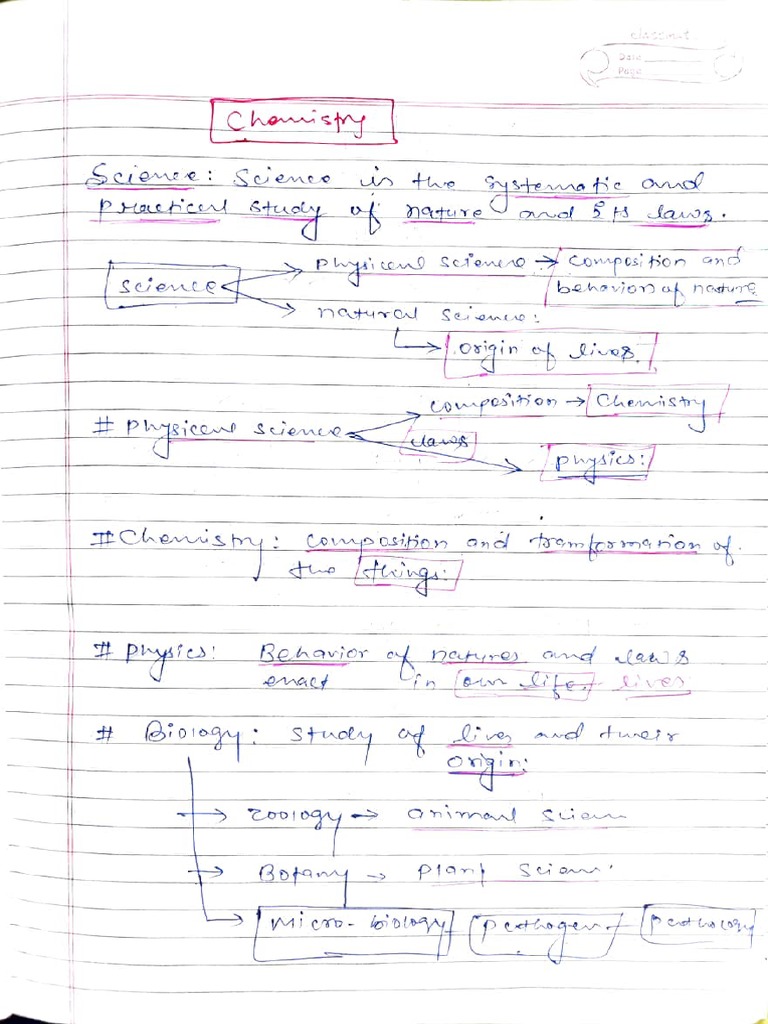 classmate
Date
Page
Chemistry
Science: Science is the systematic and
practical study of nature and its laws.
science
physical science → composition and
behavior of nature
natural science:
origin of lives.
# physical science
composition → Chemistry
laws
physics:
# Chemistry: composition and tranformation of
the things:
# physics: Behavior of natures and laws
enact in our life. lives
# Biology: study of lives and their
origin:
→ zoology → animal scien
→ Botany → plant scien
→ micro-biology pathogen pathology